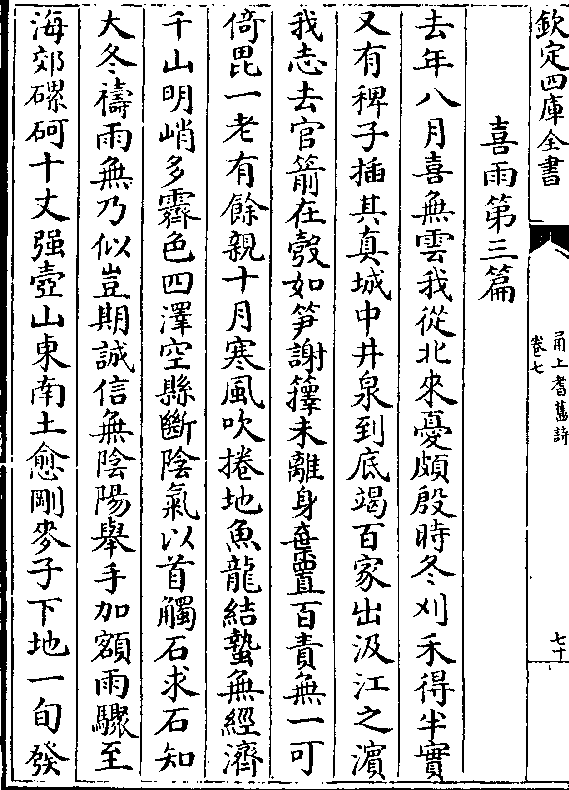 欽定四庫全書
甬上耆舊詩
卷七
七十
喜雨第三篇
去年八月喜無雲我從北來憂頗殷時冬刈禾得半實
又有稗子插其真城中井泉到底竭百家出汲江之濵
我志去官箭在彀如笋謝籜未離身棄置百責無一可
倚毘一老有餘親十月寒風吹捲地魚龍結蟄無經濟
千山明峭多霽色四澤空縣斷陰氣以首觸石求石知
大冬禱雨無乃似豈期誠信無陰陽舉手加額雨驟至
海郊磥砢十丈强壺山東南土愈剛麥子下地一旬發